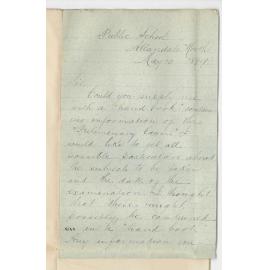 Public School
Allandale North
May 10 1891.
Sir,
Could you supply me
with a "hand book" containing
information of the
"Preliminary Exam" I
would like to get all
possible particulars about
the subjects to be taken
and the date of the
examination. I thought
that these might
possibly be contained
in the "hand book"
Any information on